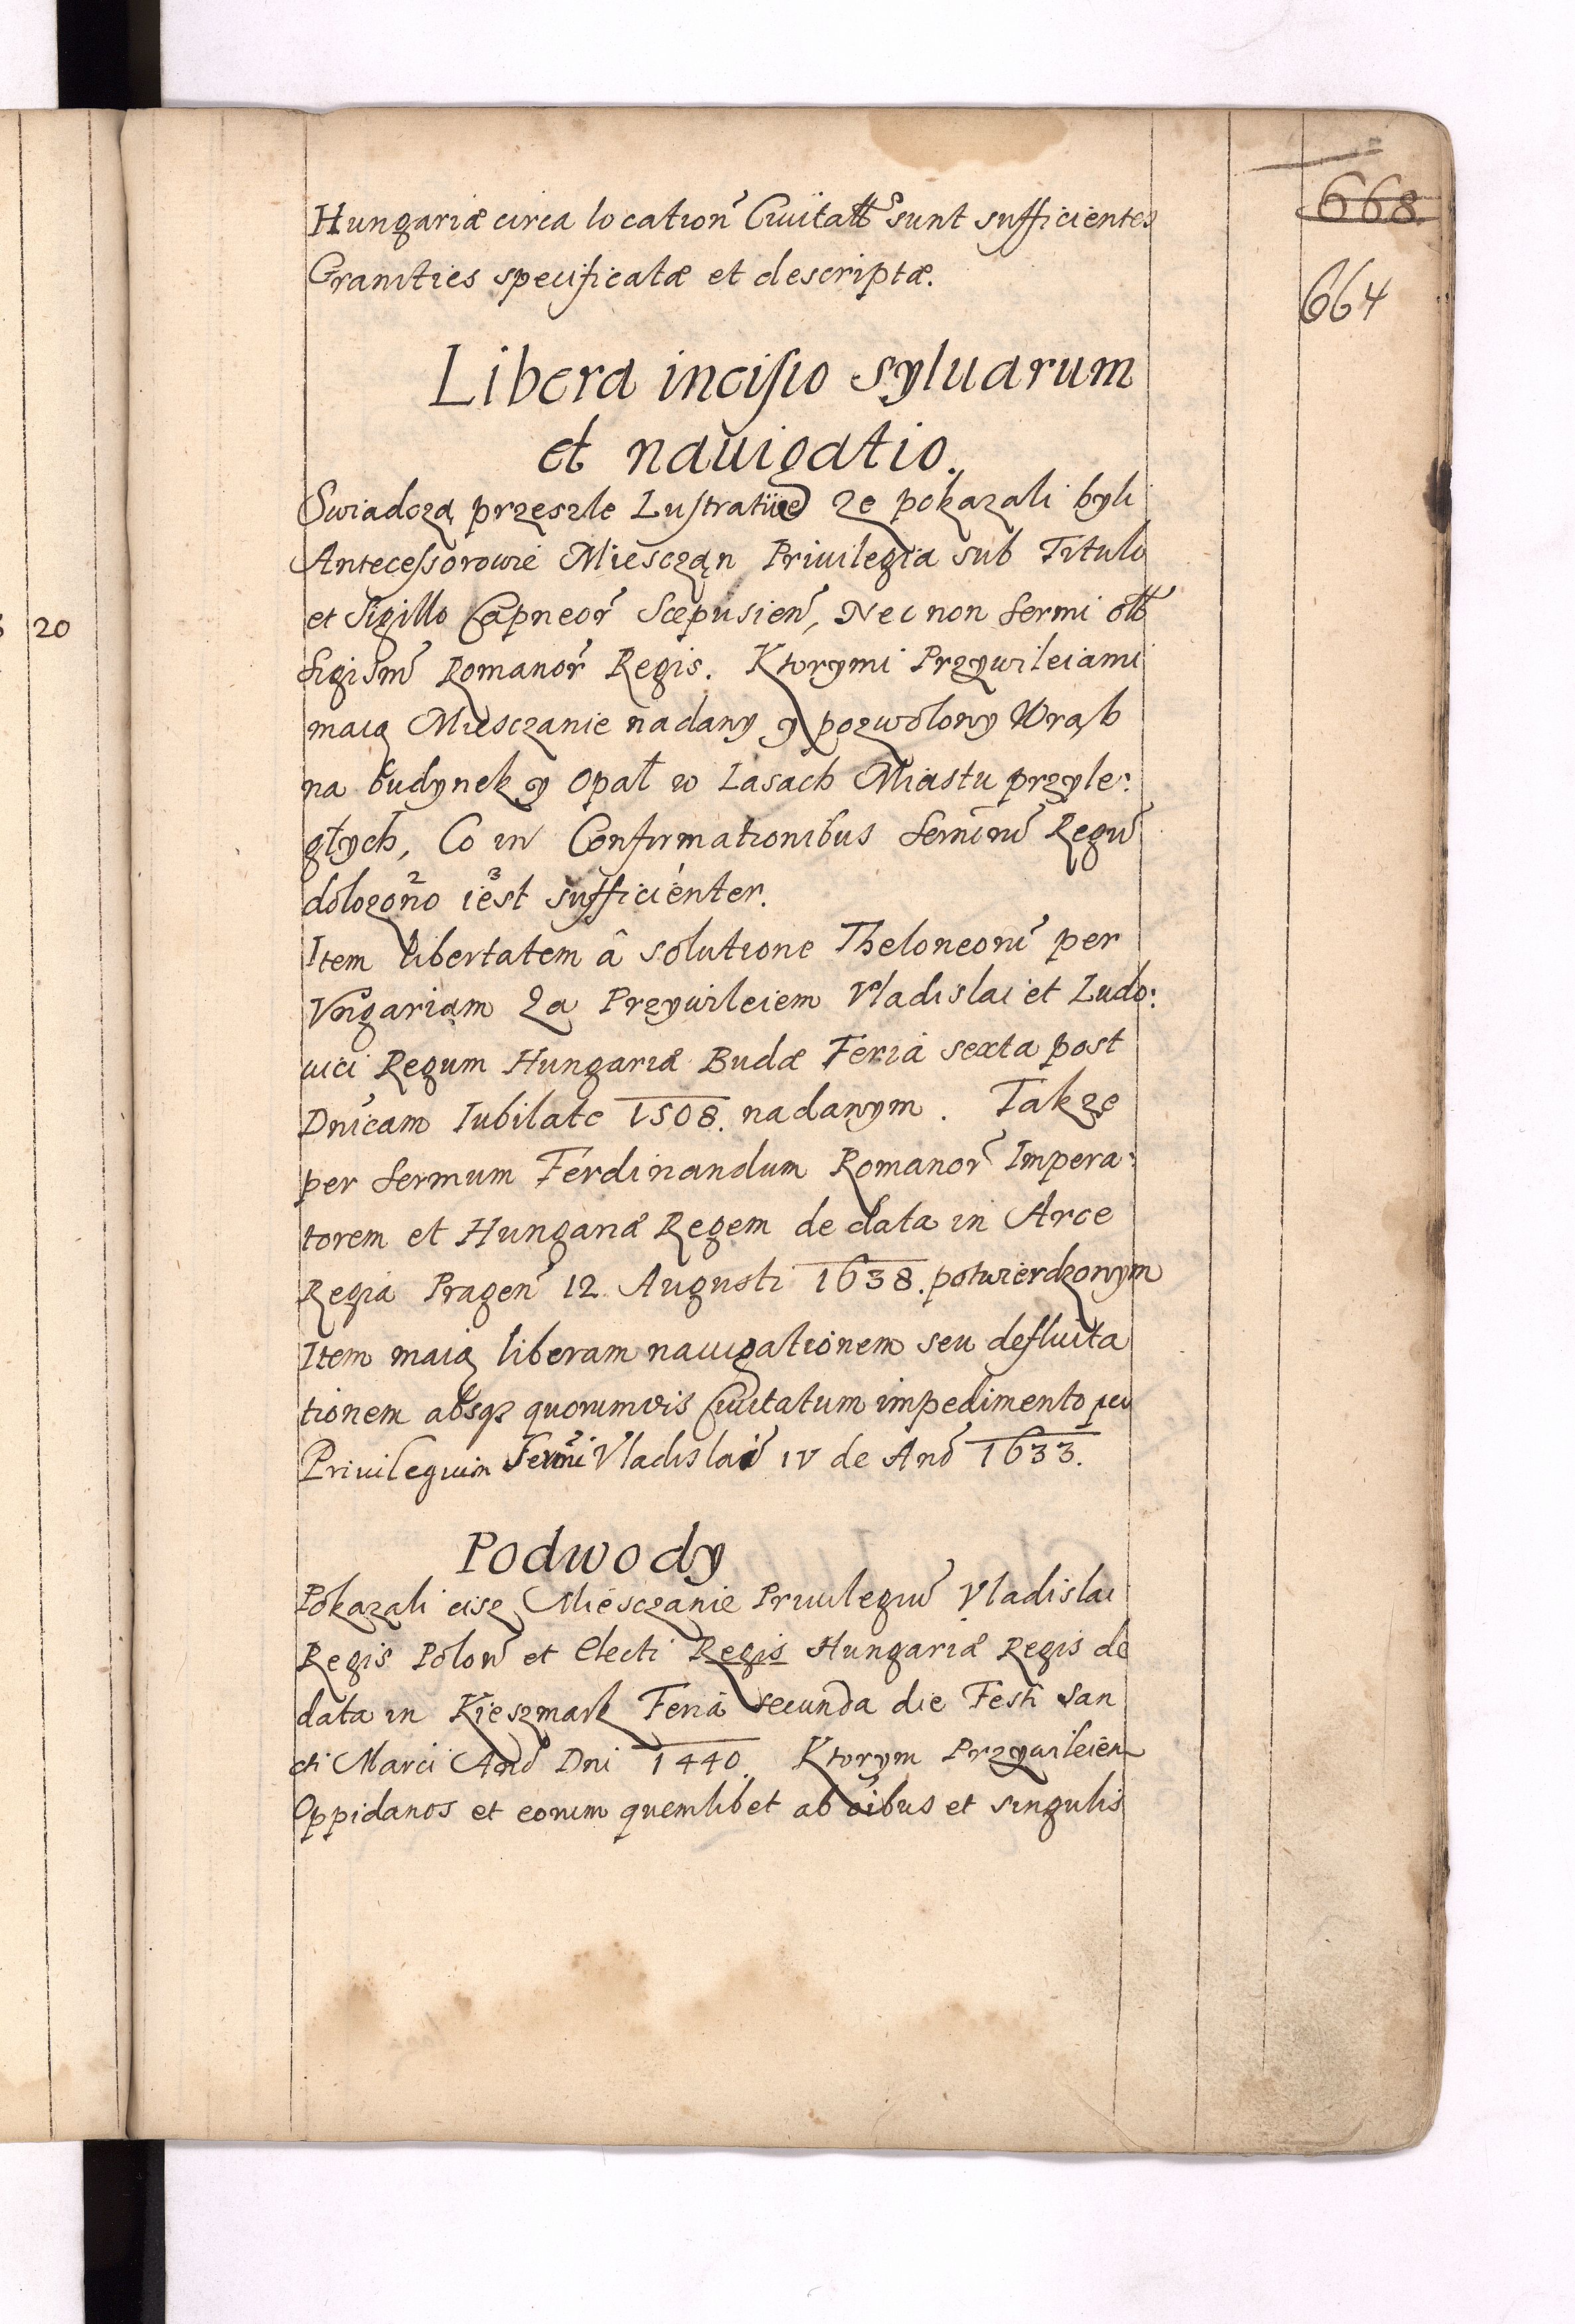 668
664
Hungariæ circa location̄ Ciuitatt̄ sunt sufficientes
Granities specificatæ et descriptæ.
Libera incisio syluarum
et nauigatio.
Swiadczą przeszle Lustratiie że pokazali byli
Antecessorowie Miesczan Priuilegia sub Titulo
et Sigillo Capneor̄ Scepusien̄, Nec non Sermi ott̄
Sigism̄ Romanor̄ Regis. Ktorymi Przywileiami
maią Miesczanie nadany y pozwolony Wrąb
na budynek y Opał w Lasach Miastu przyle:
głych, Co in Confirmationibus Regū
dolozono iest sufficienter.
Item libertatem â solutione Theloneorū per
Vngariam Za Przywileiem Vladislai et Ludo:
uici Regum Hungariæ Budæ Feria sexta post
Dnicam Iubilate 1508. nadanym. Takze
per Sermum Ferdinandum Romanor̄ Impera:
torem et Hungariæ Regem de data in Arce
Regia Pragen̄ 12 Augusti 1638. potwierdzonym
Item maią liberam nauigationem seu defluita
tionem absqz quorumvis Ciuitatum impedimento per
Priuilegium Sermi Vladislai IV de Anō 1633.
Podwody
Pokazali cisz Miesczanie Priuilegiū Vladislai
Regis Polon̄ et Electi Regis Hungariæ Regis de
data in Kieszmark Feria secunda die Festi San
cti Marci Anō Dni 1440. Ktorym Przywileiem
Oppidanos et eorum quemlibet ab oībus et singulis
20